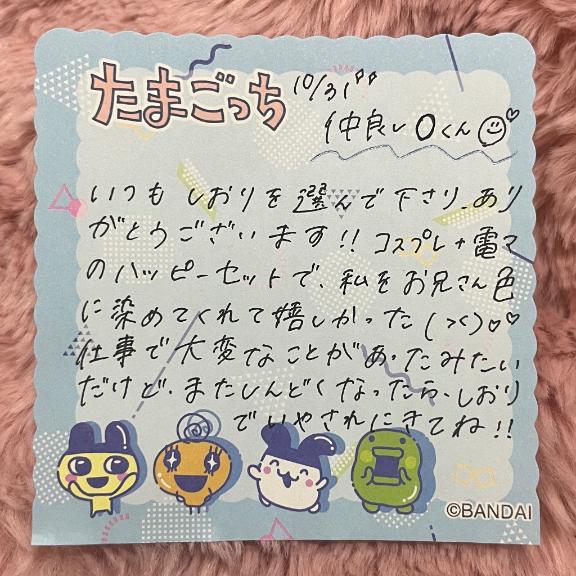 たまごっち
10/31
仲良しOくん
いつもしおりを選んで下さり、あり
がとうございます!! コスプレ+電マ
のハッピーセットで、私をお兄さん色
に染めてくれて嬉しかった(><)♡♡
仕事で大変なことがあったみたい
だけど、またしんどくなったら、しおり
でいやされにきてね!!
©BANDAI